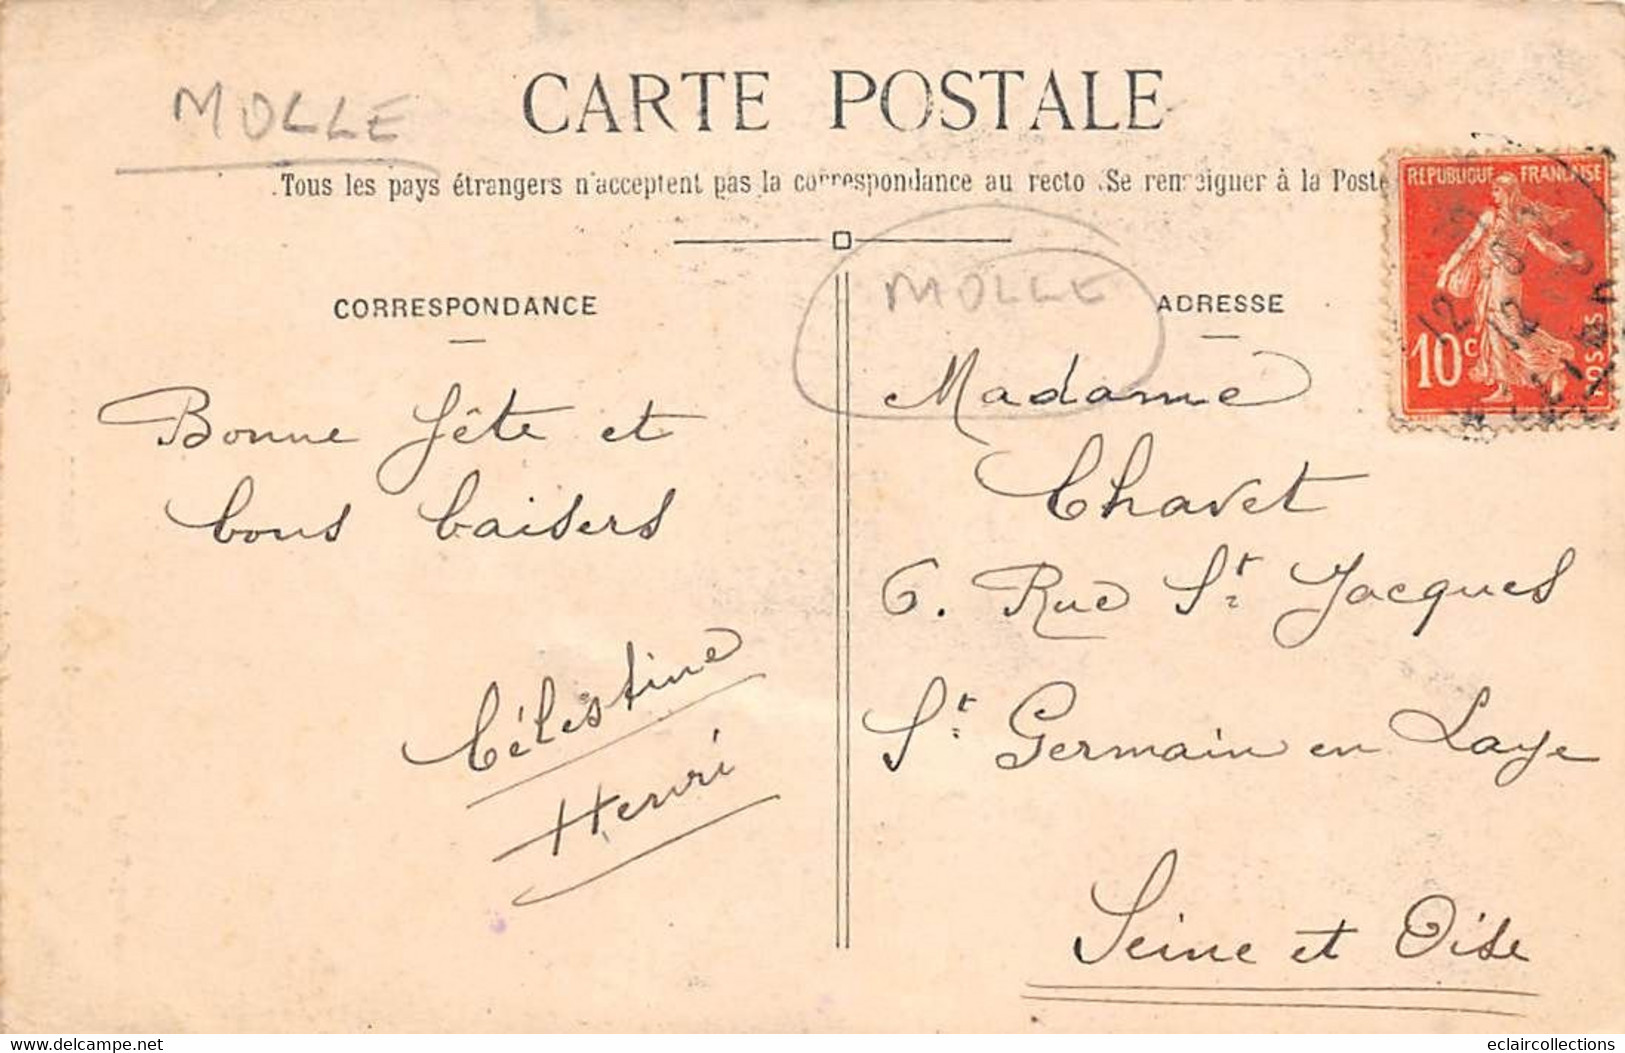 MOLLE
CARTE POSTALE
Tous les pays étrangers n'acceptent pas la correspondance au recto. Se renseigner à la Poste
MOLLE
CORRESPONDANCE
Bonne fête et
bons baisers
Célestine
Henri
ADRESSE
Madame
Chavet
6. Rue St Jacques
St Germain en Laye
Seine et Oise
REPUBLIQUE FRANÇAISE
10c
POSTES
12
12
© delcampe.net
eclaircollections